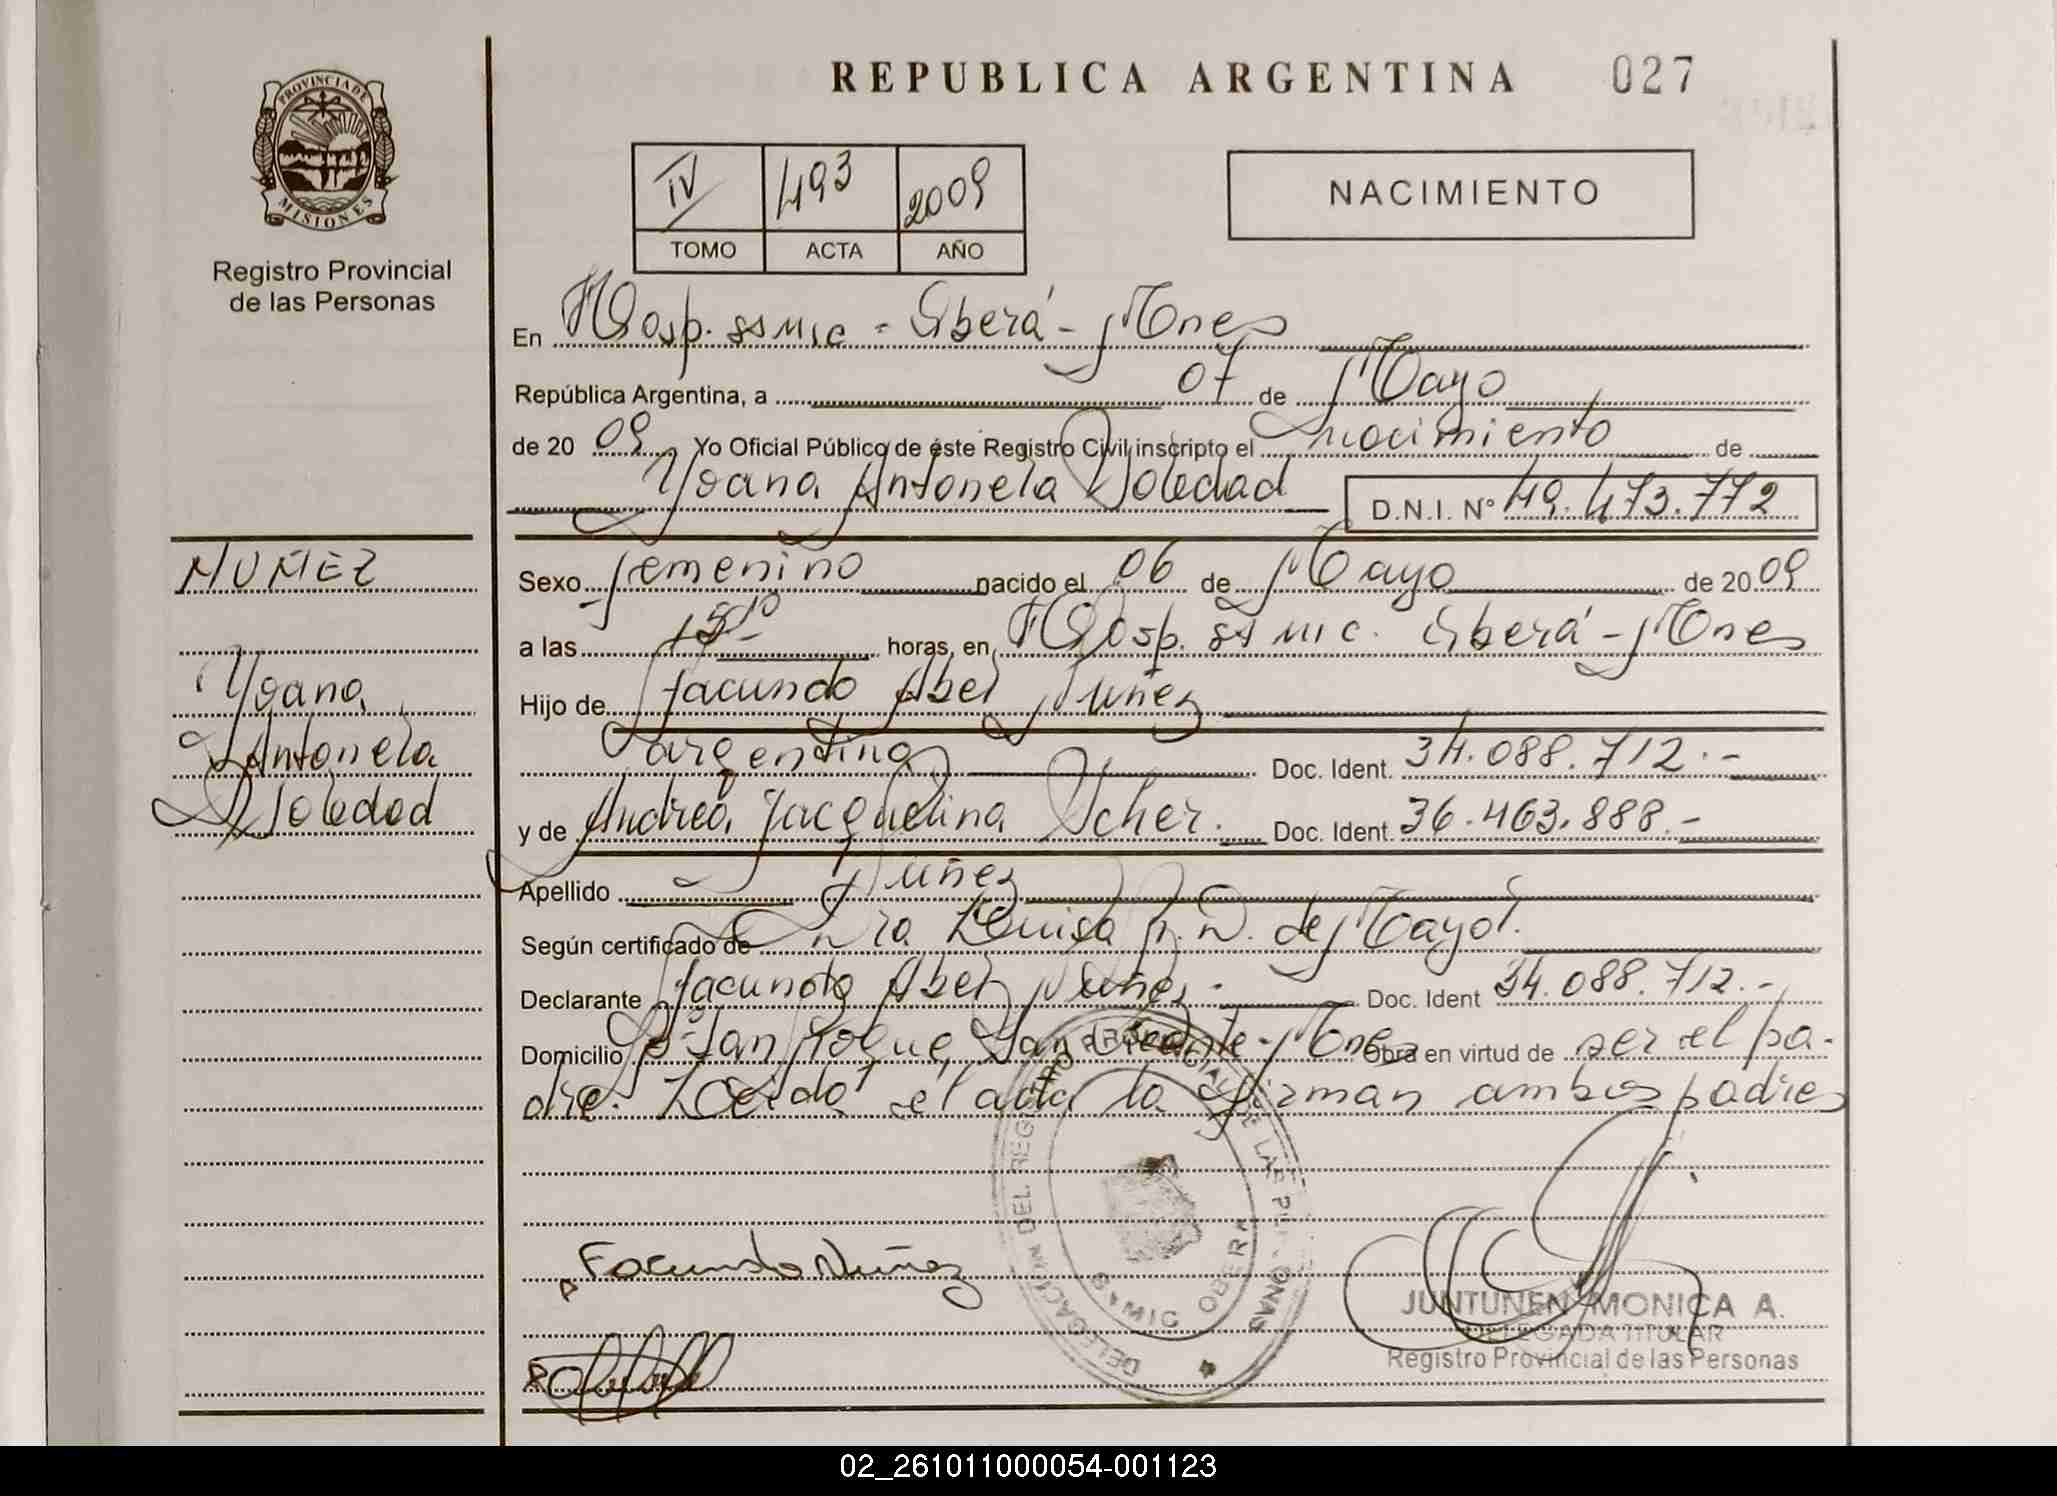 REPUBLICA ARGENTINA 027
PROVINCIA DE
MISIONES
Registro Provincial
de las Personas
IV 493 2009
TOMO ACTA AÑO
NACIMIENTO
En Hosp. SSMIC - Oberá - Mnes
República Argentina, a 07 de Mayo
de 20 09 Yo Oficial Público de éste Registro Civil inscripto el nacimiento de
Yoana Antonela Soledad D.N.I. Nº 49.473.772
NUÑEZ
Yoana
Antonela
Soledad
Sexo femenino nacido el 06 de Mayo de 20 09
a las 15 10 horas, en Hosp. SSMIC. Oberá - Mnes
Hijo de Facundo Abel Nuñez
argentino Doc. Ident. 34.088.712.-
y de Andrea Jacquelina Scher. Doc. Ident. 36.463.888.-
Apellido Nuñez
Según certificado de Dra Luisa R.D. de Mayol.
Declarante Facundo Abel Nuñez - Doc. Ident 34.088.712.-
Domicilio Bº San Roque, San Vicente - Mnes Obra en virtud de ser el pa-
dre. Leída el acta la firman ambos padres
DELEGACION DEL REGISTRO PROVINCIAL DE LAS PERSONAS
SAMIC OBERA
Facundo Nuñez
JUNTUNEN MONICA A.
DELEGADA TITULAR
Registro Provincial de las Personas
02_261011000054-001123